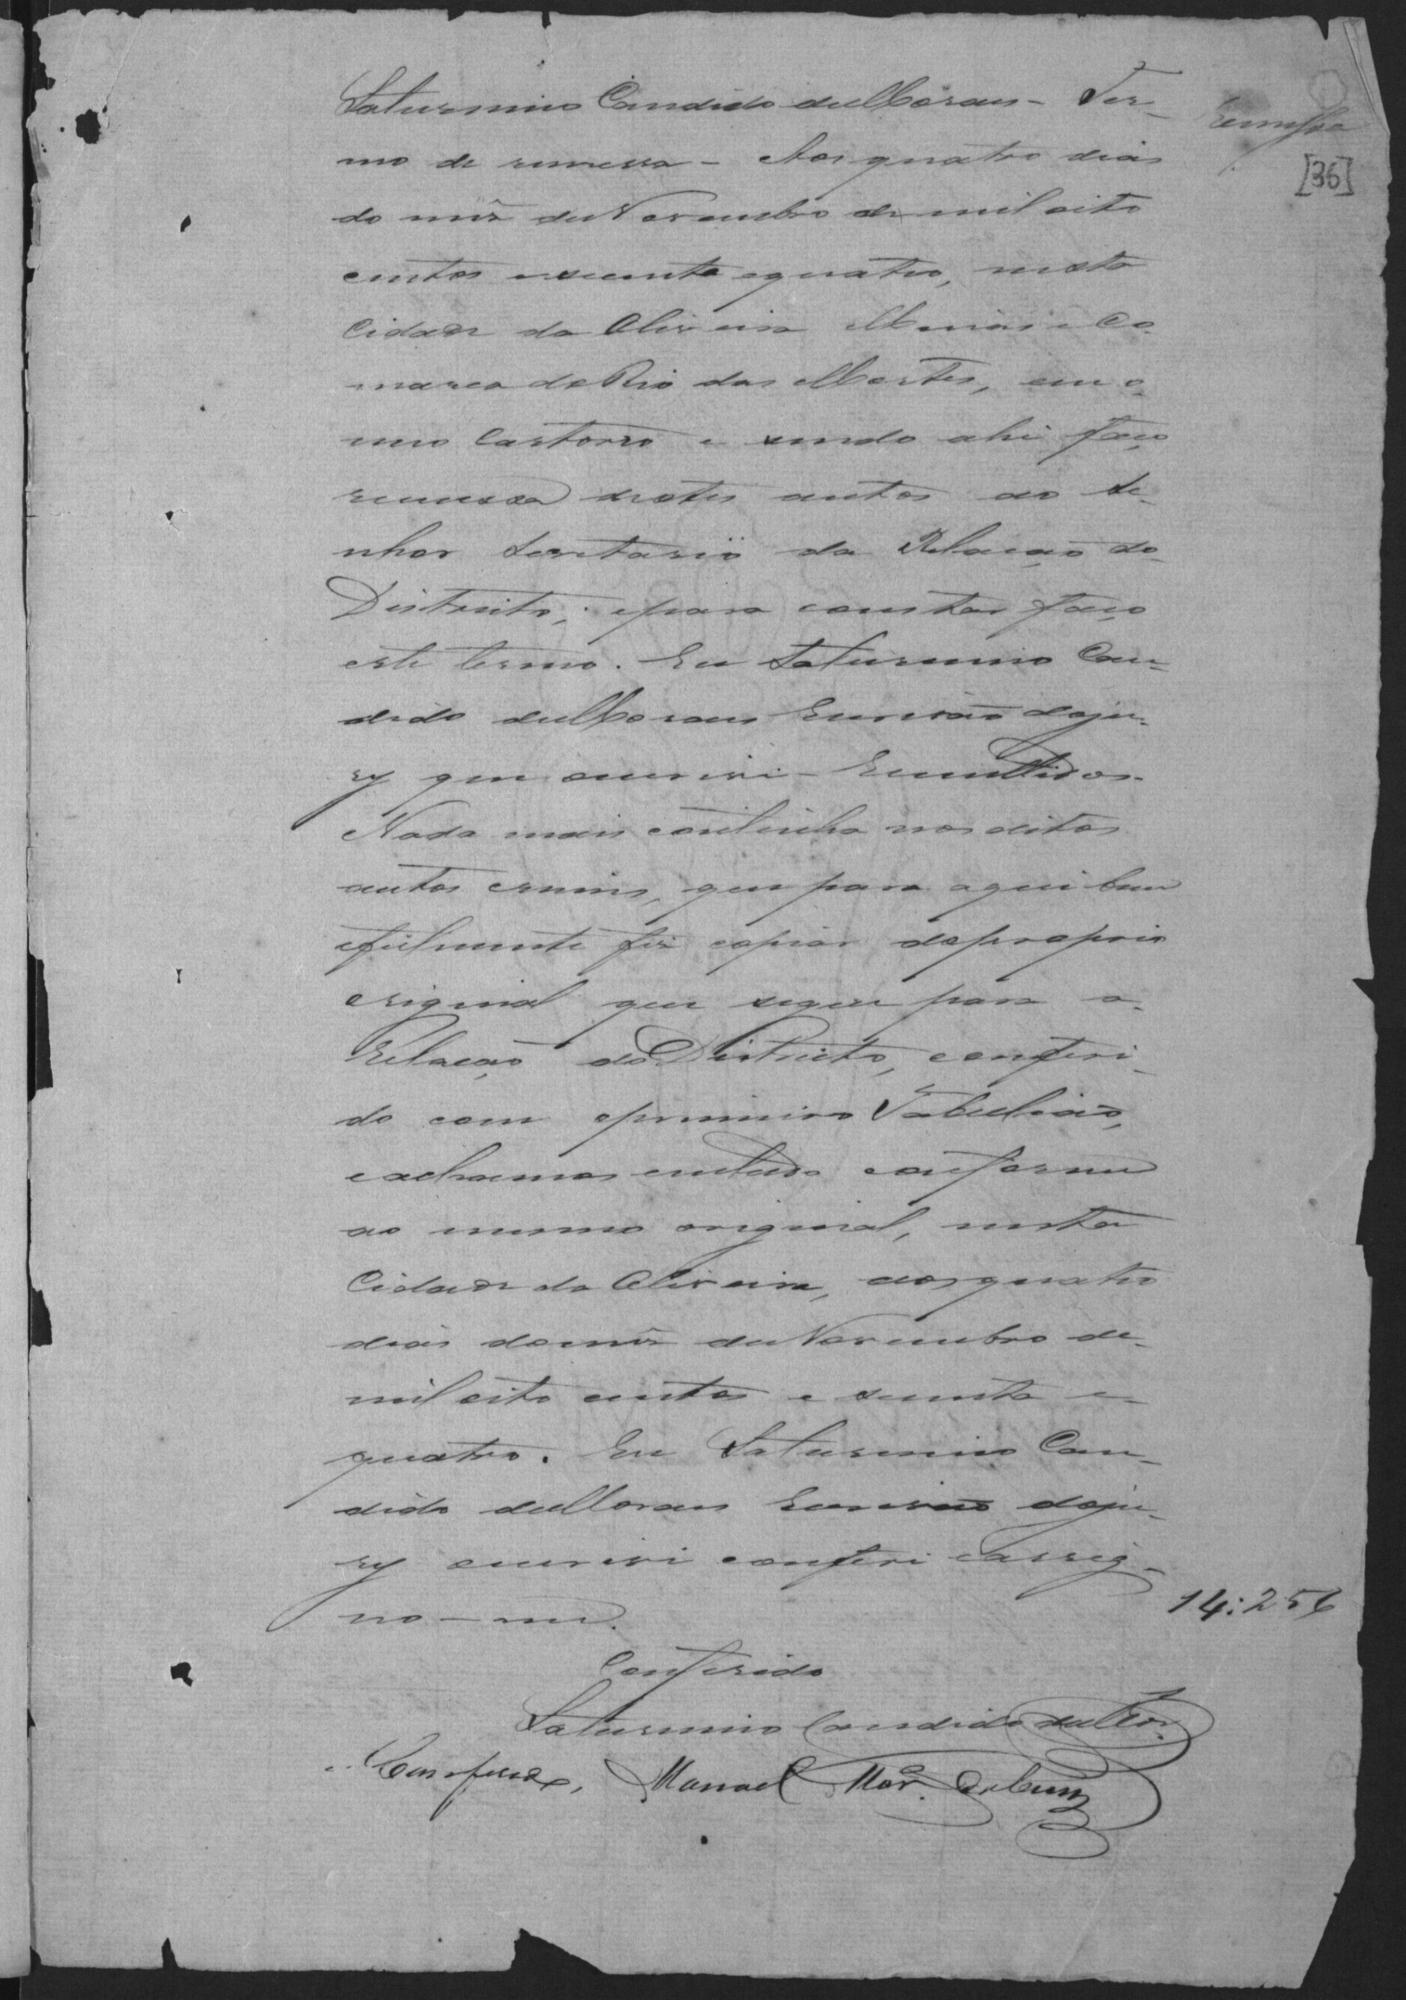 Saturnino Candido de Moraes - Ter-
Remessa
mo de remessa - Aos quatro dias
[36]
do mez de Novembro de mil oito
centos e secenta e quatro, nesta
Cidade da Oliveira Minas e Co-
marca do Rio das Mortes, em o
meo Cartorio e sendo ahi faço
remessa destes autos ao Se-
nhor Secretario da Relação do
Districto; e para constar faço
este termo. Eu Saturnino Can-
dido de Moraes Escrivão do ju-
ry que escrevi - Remettidos.
Nada mais continha nos ditos
autos crimes, que para aqui bem
e fielmente fiz copiar do proprio
original que segue para a
Relação do Districto, conferi-
do com o primeiro Tabelião,
e achamos em tudo conforme
ao mesmo original, nesta
Cidade da Oliveira, aos quatro
dias do mez de Novembro de
mil oito centos e secenta e
quatro. Eu Saturnino Can-
dido de Moraes Escrivão do ju-
ry escrevi conferi e assig-
no - me.
14:256
Conferido
Saturnino Candido de Mor.
Conferido, Manoel